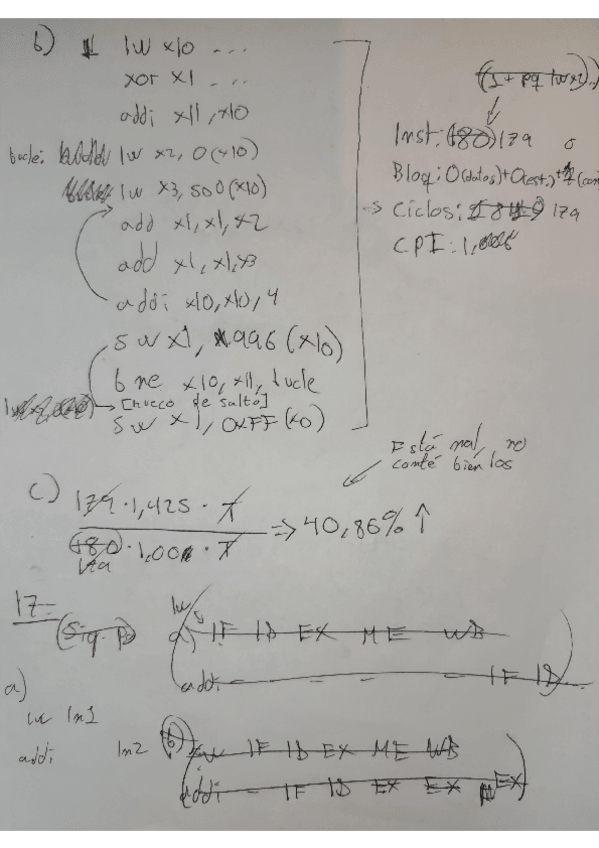 b) lw x10 ...
xor x1 ...
addi x11, x10
bucle: lw x2, 0(x10)
lw x3, 500(x10)
add x1, x1, x2
add x1, x1, x3
addi x10, x10, 4
sw x1, 996(x10)
bne x10, x11, bucle
[hueco de salto]
sw x1, 0xFF(x0)
Inst: (180) 179
Bloq: 0(datos)+0(est.)+
Ciclos: 179
CPI: 1,
Está mal, no
conté bien los
c) 179 · 1,425 · T
180 · 1,00 · T
179
=> 40,86% ↑
17=
(Sig. P)
lw
a) IF ID EX ME WB
addi - - - - IF ID
a)
lw ln1
addi ln2
(b) sw IF ID EX ME WB
addi - IF ID EX EX EX